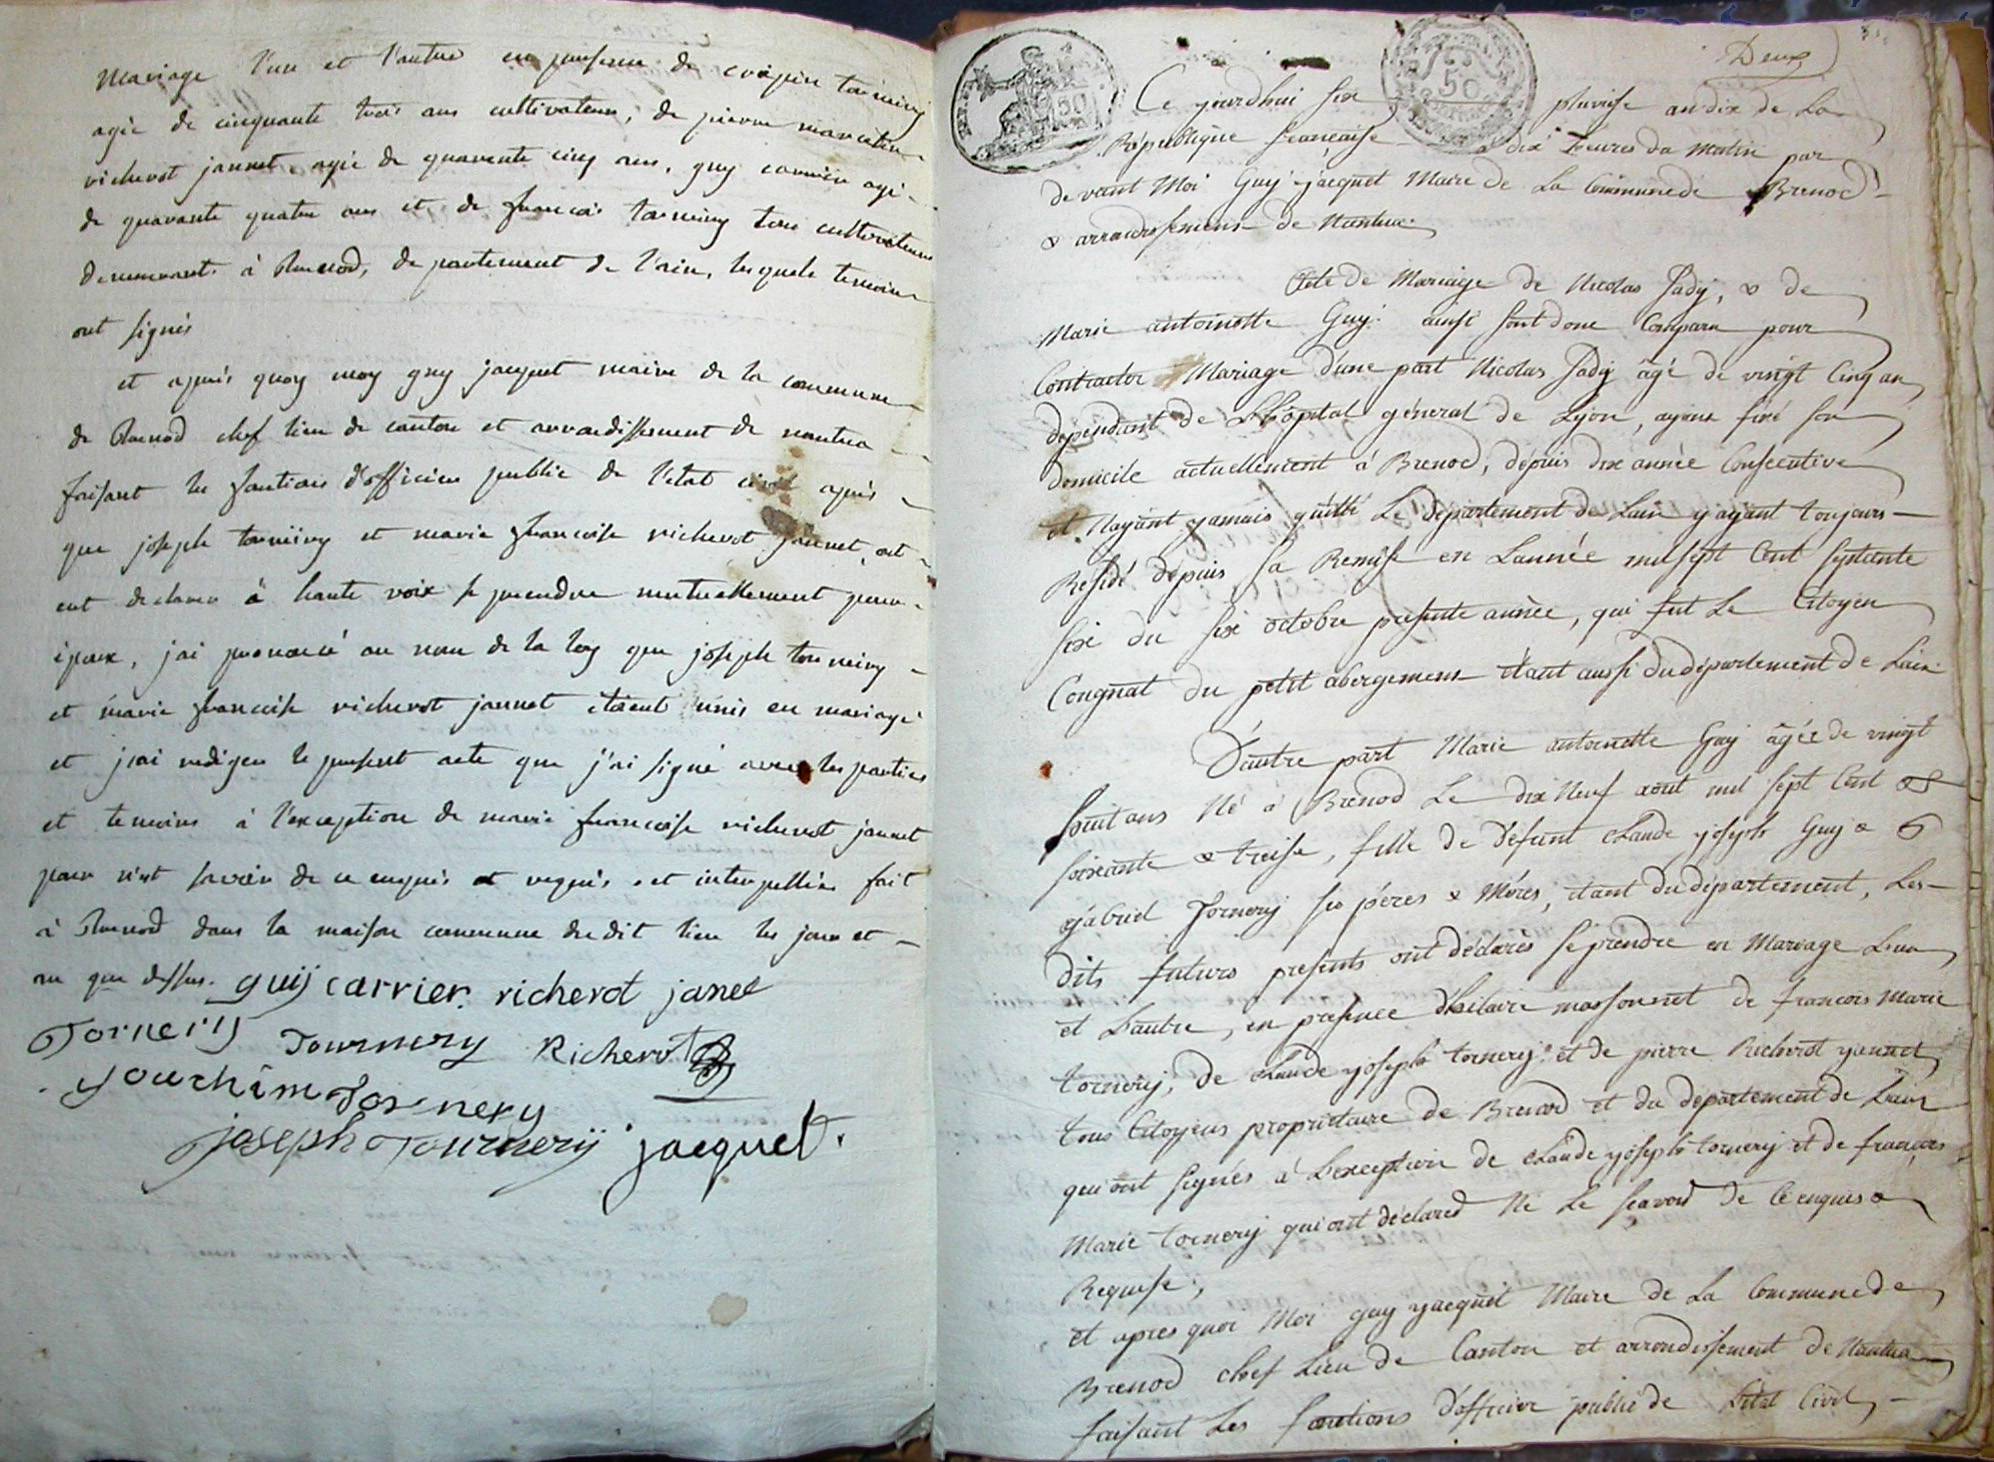 mariage l'un et l'autre en presence de crépin torniéry
agé de cinquante trois ans cultivateur, de pierre marcelin
richerot jannet agé de quarente cinq ans, guy carrier agé
de quarante quatre ans et de francois torniery tous cultivateurs
demeurants à Brenod, departement de l'ain, lesquels temoins
ont signés
et après quoy moy guy jacquet maire de la commune
de Brenod chef lieu de canton et arrondissement de nantua
faisant les fonctions d'officier public de l'etat civil après
que joseph torniéry et marie francoise richerot jannet ont
eut declaré à haute voix se prendre mutuellement pour
époux, j'ai prononcé au nom de la loy que joseph torniery
et marie francoise richerot jannet étoient unis en mariage
et j'ai redigea le present acte que j'ai signé avec les parties
et temoins à l'exception de marie francoise richerot jannet
pour n'et scavoir de ce enquis et requis et interpellée fait
à Brenod dans la maison commune dudit lieu les jour et
an que dessus. guij carrier. richerot janet
Tornerij Tournery Richerot
jouchim Tornery
joseph Tournerij jacquet.
Deux
50 50
Ce jourdhui six pluviose an dix de La
République francaise a dix heures du matin par
devant Moi Guy jacquet Maire de La Commune de Brenod
& arrondissement de Nantua
Acte de Mariage de Nicolas Jady, & de
Marie antoinette Guy. ainsi sont donc Comparu pour
Contracter Mariage d'une part Nicolas Jady âgé de vingt Cinq an
dépendant de L'hôpital géneral de Lyon, ayant fixé son
domicile actuellement à Brenod, dépuis dix année Consecutive
et Nayant jamais quitté Le département de Lain y ayant toujours
Residé dépuis sa Remise en L'année mil sept Cent septante
sixe du six octobre presente année, qui fut Le Citoyen
Cougnat du petit abergement étant aussi du département de Lain
D'autre part Marie antoinette Guy âgée de vingt
huit ans Né à Brenod Le dix Neuf aout mil sept Cent
soixante & treise, fille de Défunt claude joseph Guy &
gabriel Tornery ses péres & Méres, étant du département, Les
dits futurs presents ont déclarés se prendre en Mariage L'un
et L'autre, en presence d'hilaire massonnet de francois Marie
tornery, de claude joseph tornery et de pierre Richerot jannet
tous Citoyens proprietaire de Brenod et du département de Lain
qui ont signés à L'exception de claude joseph tornery et de francois
Marie tornery qui ont déclared Ne Le scavoir de Ce enquis &
Requise;
et apres quoi Moi guy jacquet Maire de La Commune de
Brenod chef Lieu de Canton et arrondissement de Nantua
faisant Les fonctions d'officier public de L'etat Civil